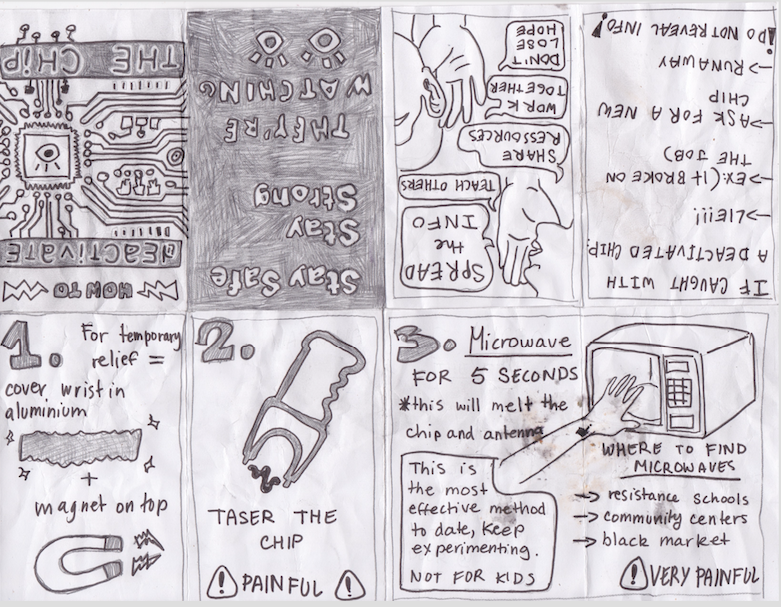 HOW TO
deactivate
THE CHIP
1.
For temporary
relief =
cover wrist in
aluminium
+
magnet on top
2.
TASER THE
CHIP
! PAINFUL !
3. Microwave
FOR 5 SECONDS
*this will melt the
chip and antenna
This is
the most
effective method
to date, keep
experimenting.
NOT FOR KIDS
WHERE TO FIND
MICROWAVES
→ resistance schools
→ community centers
→ black market
! VERY PAINFUL
IF CAUGHT WITH
A DEACTIVATED CHIP:
→LIE!!!
→EX:(IT BROKE ON
THE JOB)
→ASK FOR A NEW
CHIP
→RUNAWAY
!DO NOT REVEAL INFO!
SPREAD
the
INFO
TEACH OTHERS
SHARE
RESSOURCES
WORK
TOGETHER
DON'T
LOSE
HOPE
Stay Safe
Stay
Strong
THEY'RE
WATCHING